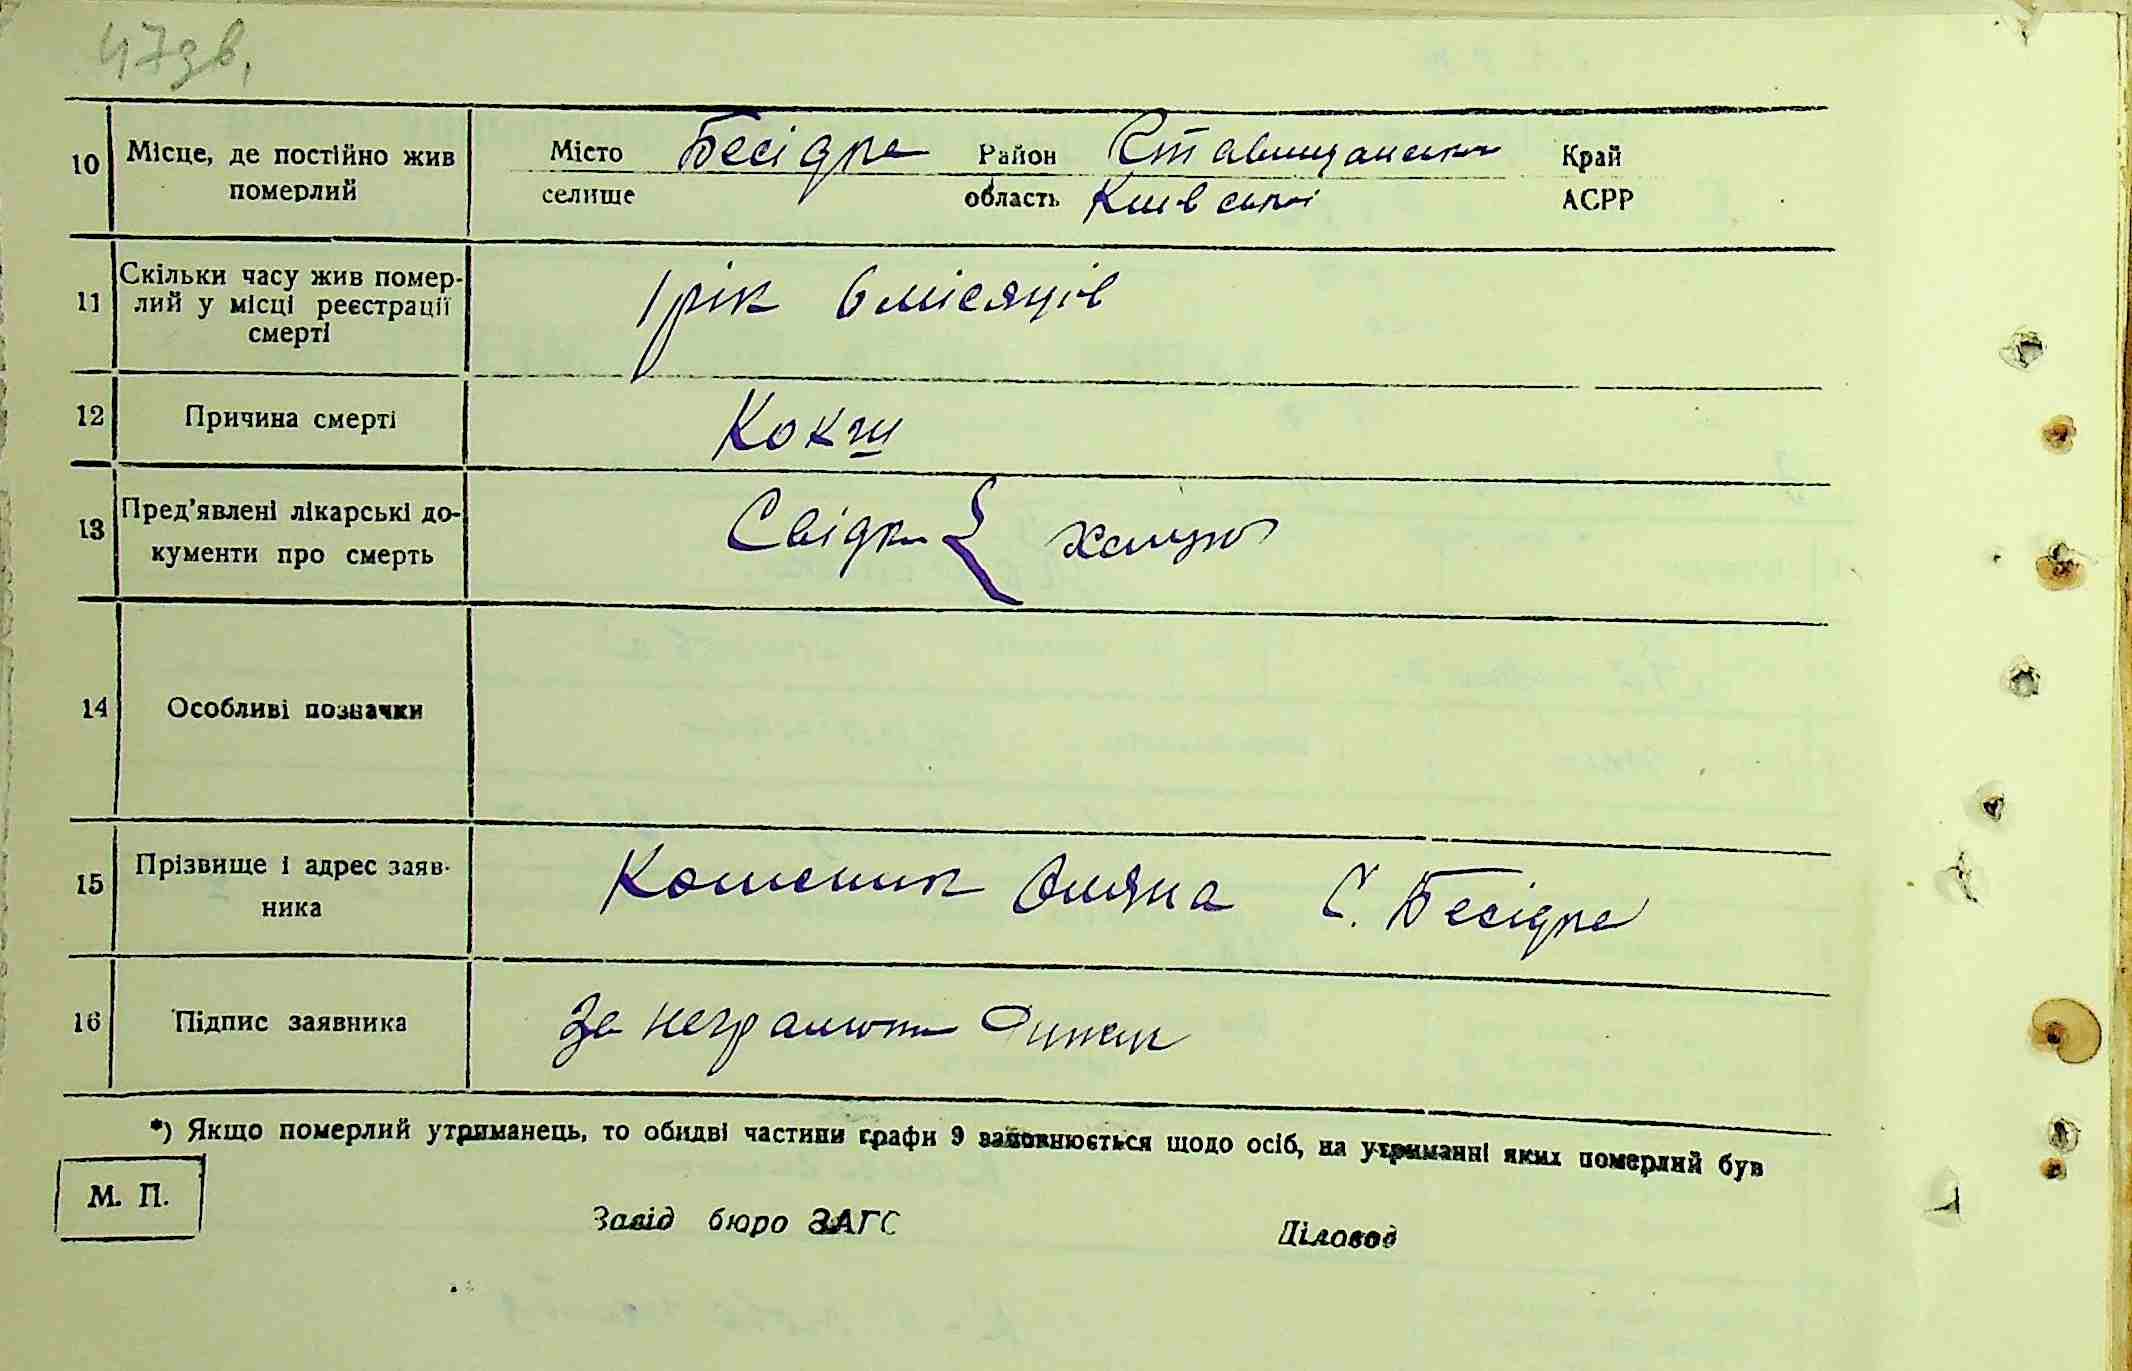 47 зв.
10 Місце, де постійно жив померлий Місто селище Бесідка Район Ставищанськ область Київської Край АСРР
11 Скільки часу жив померлий у місці реєстрації смерті 1 рік 6 місяців
12 Причина смерті Коклш
13 Пред'явлені лікарські документи про смерть Свідки
14 Особливі позначки
15 Прізвище і адрес заявника Уляна С. Бесідка
16 Підпис заявника За неграмотн
*) Якщо померлий утриманець, то обидві частини графи 9 заповнюється щодо осіб, на утриманні яких померлий був
М. П.
Завід бюро ЗАГС Діловод